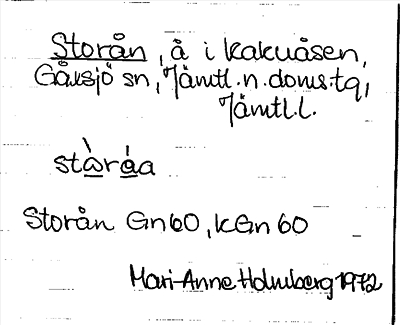 Storån, å i Kakuåsen,
Gåxsjö sn, Jämtl.n.doms.tq,
Jämtl.l.
stὼråa
Storån Gn60, kGn 60
Mari-Anne Holmberg 1972